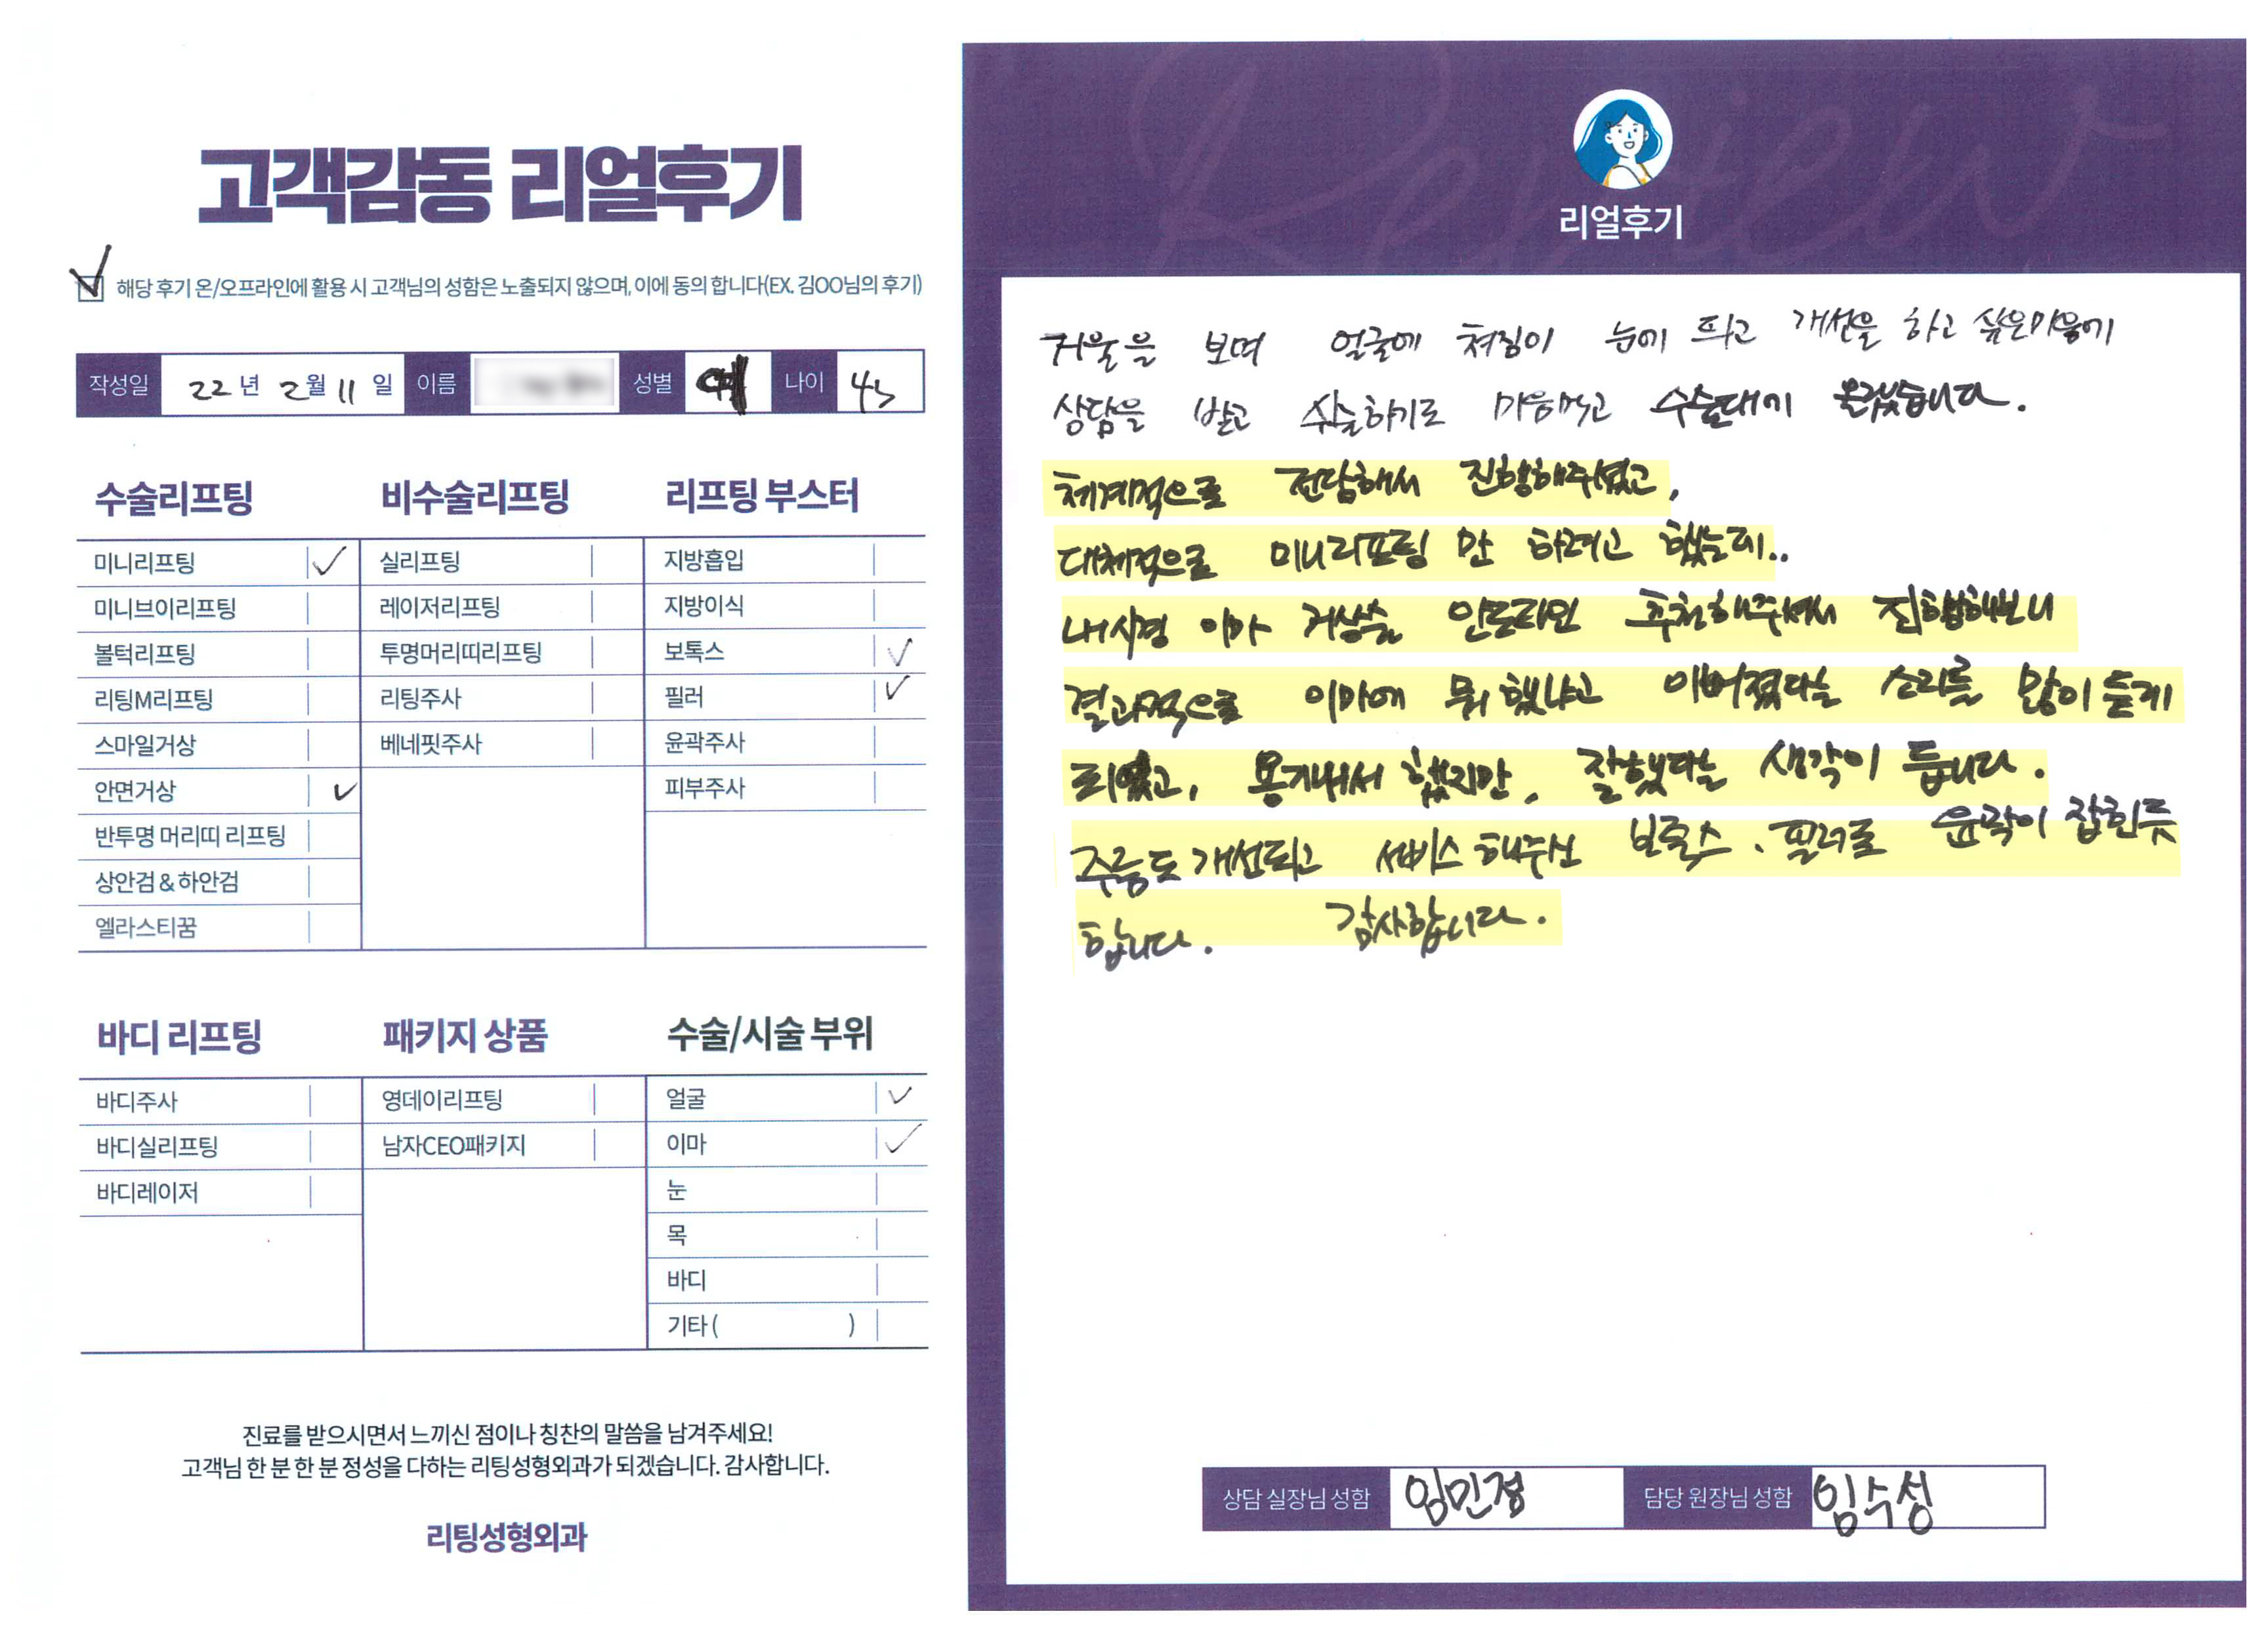 고객감동 리얼후기
해당 후기 온/오프라인에 활용 시 고객님의 성함은 노출되지 않으며, 이에 동의 합니다(EX. 김OO님의 후기)
작성일 22년 2월 11일 이름 성별 나이
수술리프팅
미니리프팅
미니브이리프팅
볼턱리프팅
리팅M리프팅
스마일거상
안면거상
반투명 머리띠 리프팅
상안검&하안검
엘라스티꿈
비수술리프팅
실리프팅
레이저리프팅
투명머리띠리프팅
리팅주사
베네핏주사
리프팅 부스터
지방흡입
지방이식
보톡스
필러
윤곽주사
피부주사
바디 리프팅
바디주사
바디실리프팅
바디레이저
패키지 상품
영데이리프팅
남자CEO패키지
수술/시술 부위
얼굴
이마
눈
목
바디
기타( )
진료를 받으시면서 느끼신 점이나 칭찬의 말씀을 남겨주세요!
고객님 한 분 한 분 정성을 다하는 리팅성형외과가 되겠습니다. 감사합니다.
리팅성형외과
Review
리얼후기
거울을 보며 얼굴에 쳐짐이 눈에 띄고 개선을 하고 싶은마음에
상담을 받고 수술하기로 마음먹고 수술대에 올랐습니다.
체계적으로 전담해서 진행해주셨고,
대체적으로 미니리프팅 만 하려고 했는데..
내시경 이마 거상술 추천해주셔서 진행해보니
결과적으로 이마에 뭐 했냐고 이뻐졌다는 소리를 많이 듣게
되었고, 용기내서 했지만, 잘했다는 생각이 듭니다.
주름도 개선되고 서비스 해주신 보톡스. 필러로 윤곽이 잡힌듯
합니다. 감사합니다.
상담 실장님 성함 임민경 담당 원장님 성함 임수성